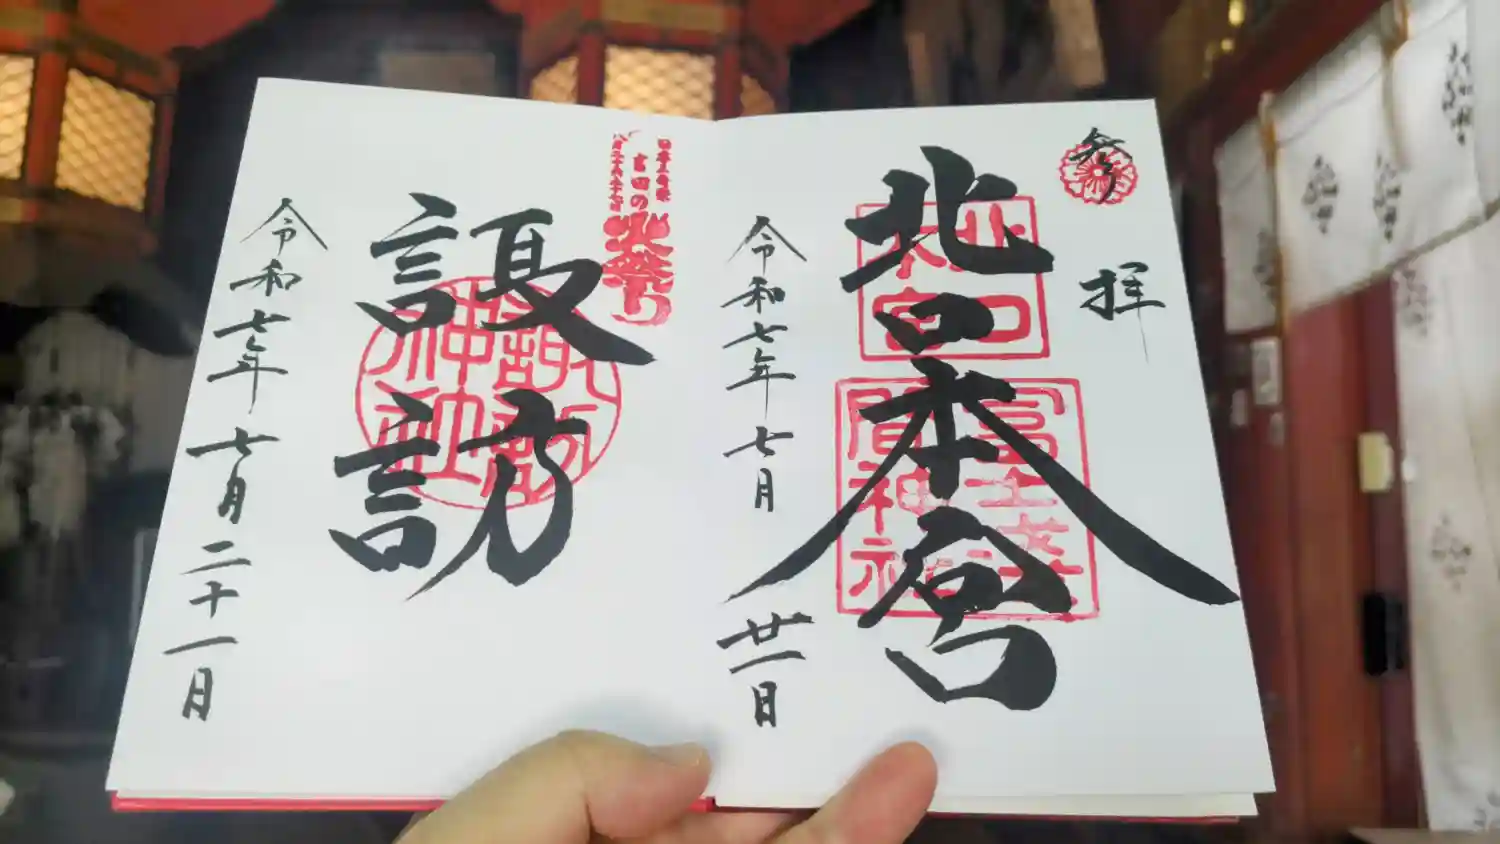 参拝
北口本宮
北口
本宮
冨士浅
間神社
令和七年七月廿一日
日本三奇祭
吉田の火祭り
諏訪
諏訪
神社
令和七年七月二十一日